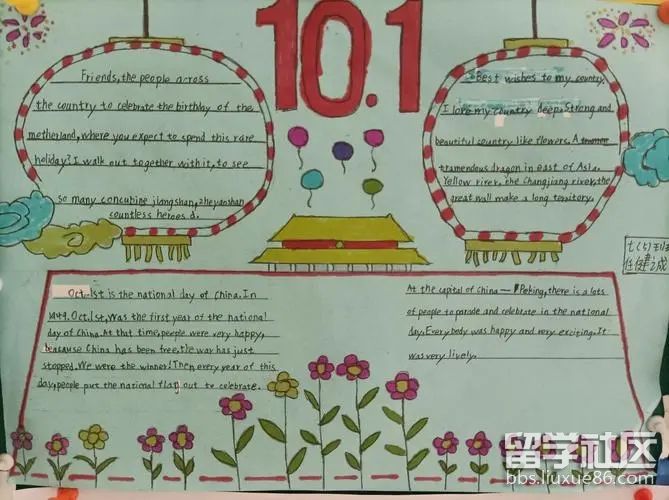 10.1
Friends, the people across
the country to celebrate the birthday of the
metherland, where you expect to spend this rare
holiday? I walk out together with it, to see
so many concubine jiangshan, zheyaoshan
countless heroes d.
Best wishes to my country.
I love my country deep. Strong and
beautiful country like flowers. A
tramendous dragon in east of Asia.
Yellow river, the Changjiang river, the
great wall make a long territory.
七(5)班
任健诚
Oct.1st is the national day of China. In
1949. Oct.1st, was the first year of the national
day of China. At that time, people were very happy,
beacause China has been free, the war has just
stopped. We were the winner! Then every year of this
day, people put the national flag out to celebrate.
At the capital of China — Peking, there is a lots
of people to parade and celebrate in the national
day. Everybody was happy and very exciting. It
was very lively.
留学社区
bbs.liuxue86.com